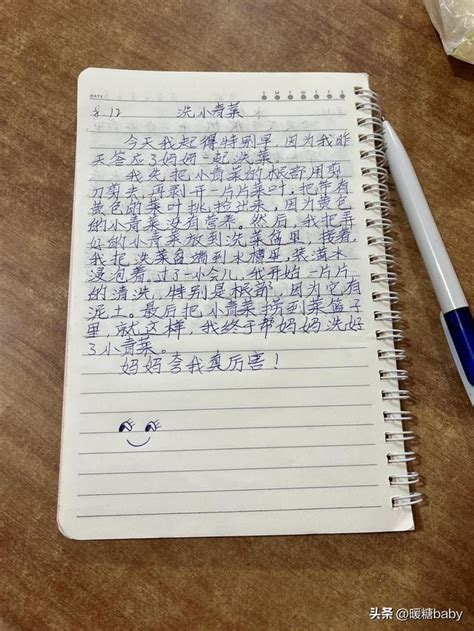 DATE
8.12 洗小青菜
今天我起得特别早,因为我昨
天答应了妈妈一起洗菜。
我先把小青菜的根部用剪
刀剪去,再剥开一片片菜叶,把带有
黄色的菜叶挑捡出来,因为黄色
的小青菜没有营养。然后,我把弄
好的小青菜放到洗菜盆里,接着
我把洗菜盆端到水槽里,装满水
浸泡着。过了一小会儿,我开始一片片
的清洗,特别是根部,因为它有
泥土。最后把小青菜捞到菜篮子
里,就这样,我终于帮妈妈洗好
了小青菜。
妈妈夸我真厉害!
头条 @暖糖baby